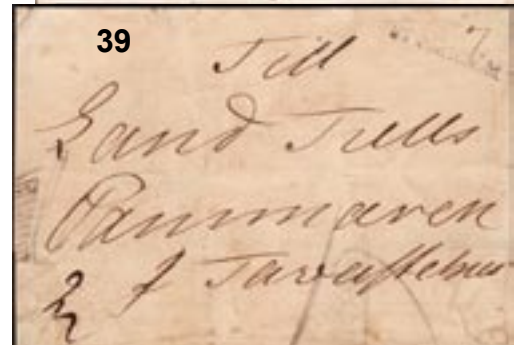 39
Till
Land Tulls
Cammaren
J Tavastehus